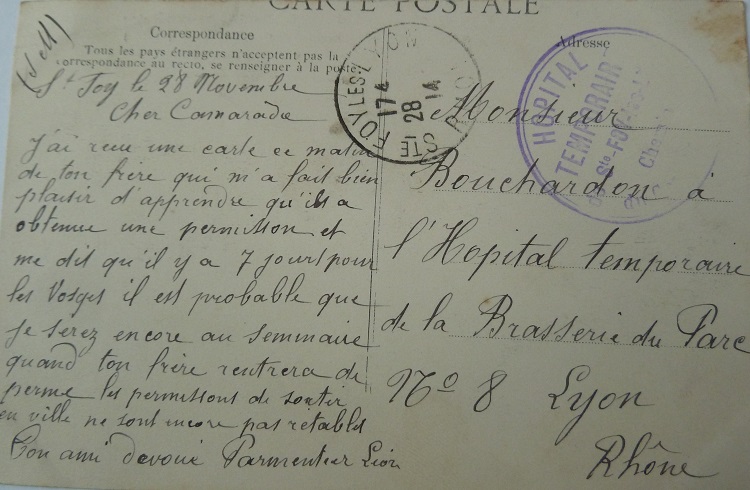 CARTE POSTALE
Correspondance
Tous les pays étrangers n'acceptent pas la
correspondance au recto, se renseigner à la poste
St Foy le 28 Novembre
Cher Camarade
J'ai recu une carte ce matin
de ton frère qui m'a fait bien
plaisir d'apprendre qu'ils a
obtenue une permission et
me dit qu'il y a 7 jours pour
les Vosges il est probable que
je serez encore au seminaire
quand ton frère rentrera de
perme les permissons de sortir
en ville ne sont encore pas rétablis
Ton ami devoué Parmentier Léon
STE FOY LES LYON
17 4
28
14
HOPITAL
TEMPORAIR
Ste-Foy
Adresse
Monsieur
Bouchardon à
l'Hopital temporaire
de la Brasserie du Parc
No 8 Lyon
Rhône